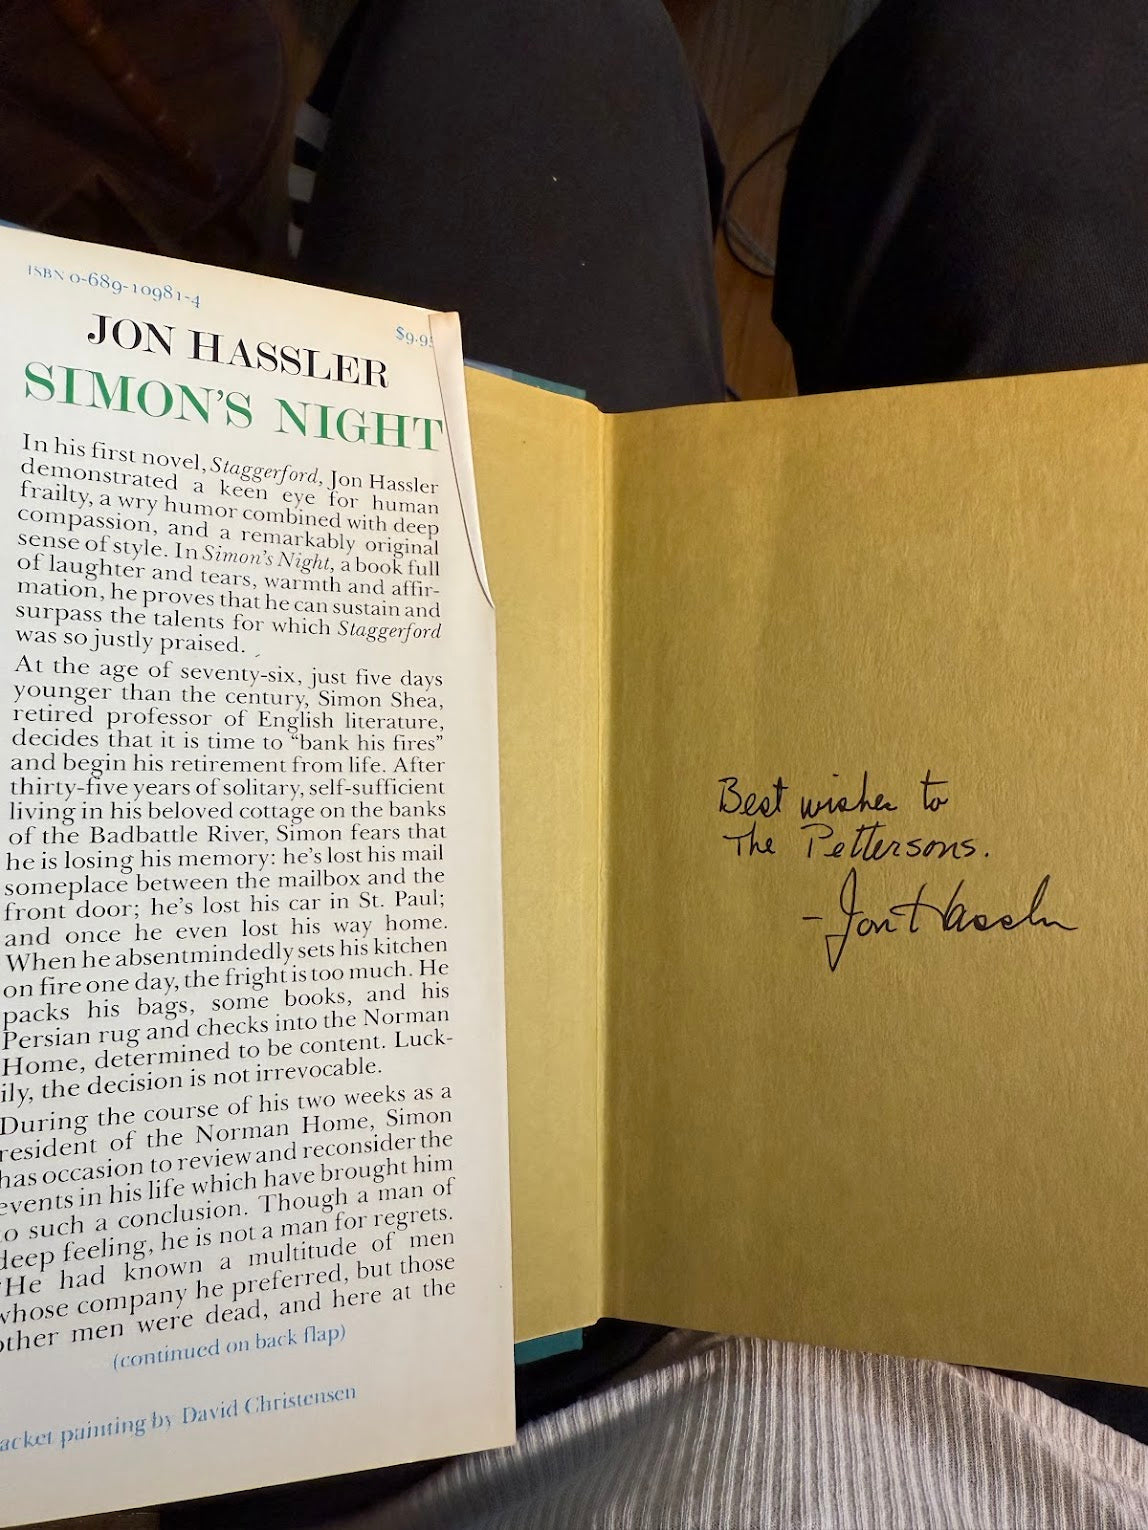 ISBN 0-689-10981-4
$9.95
JON HASSLER
SIMON'S NIGHT
In his first novel, Staggerford, Jon Hassler
demonstrated a keen eye for human
frailty, a wry humor combined with deep
compassion, and a remarkably original
sense of style. In Simon's Night, a book full
of laughter and tears, warmth and affir-
mation, he proves that he can sustain and
surpass the talents for which Staggerford
was so justly praised.
At the age of seventy-six, just five days
younger than the century, Simon Shea,
retired professor of English literature,
decides that it is time to “bank his fires”
and begin his retirement from life. After
thirty-five years of solitary, self-sufficient
living in his beloved cottage on the banks
of the Badbattle River, Simon fears that
he is losing his memory: he's lost his mail
someplace between the mailbox and the
front door; he's lost his car in St. Paul;
and once he even lost his way home.
When he absentmindedly sets his kitchen
on fire one day, the fright is too much. He
packs his bags, some books, and his
Persian rug and checks into the Norman
Home, determined to be content. Luck-
ily, the decision is not irrevocable.
During the course of his two weeks as a
resident of the Norman Home, Simon
has occasion to review and reconsider the
events in his life which have brought him
to such a conclusion. Though a man of
deep feeling, he is not a man for regrets.
“He had known a multitude of men
whose company he preferred, but those
other men were dead, and here at the
(continued on back flap)
acket painting by David Christensen
Best wishes to
The Pettersons.
-Jon Hassler